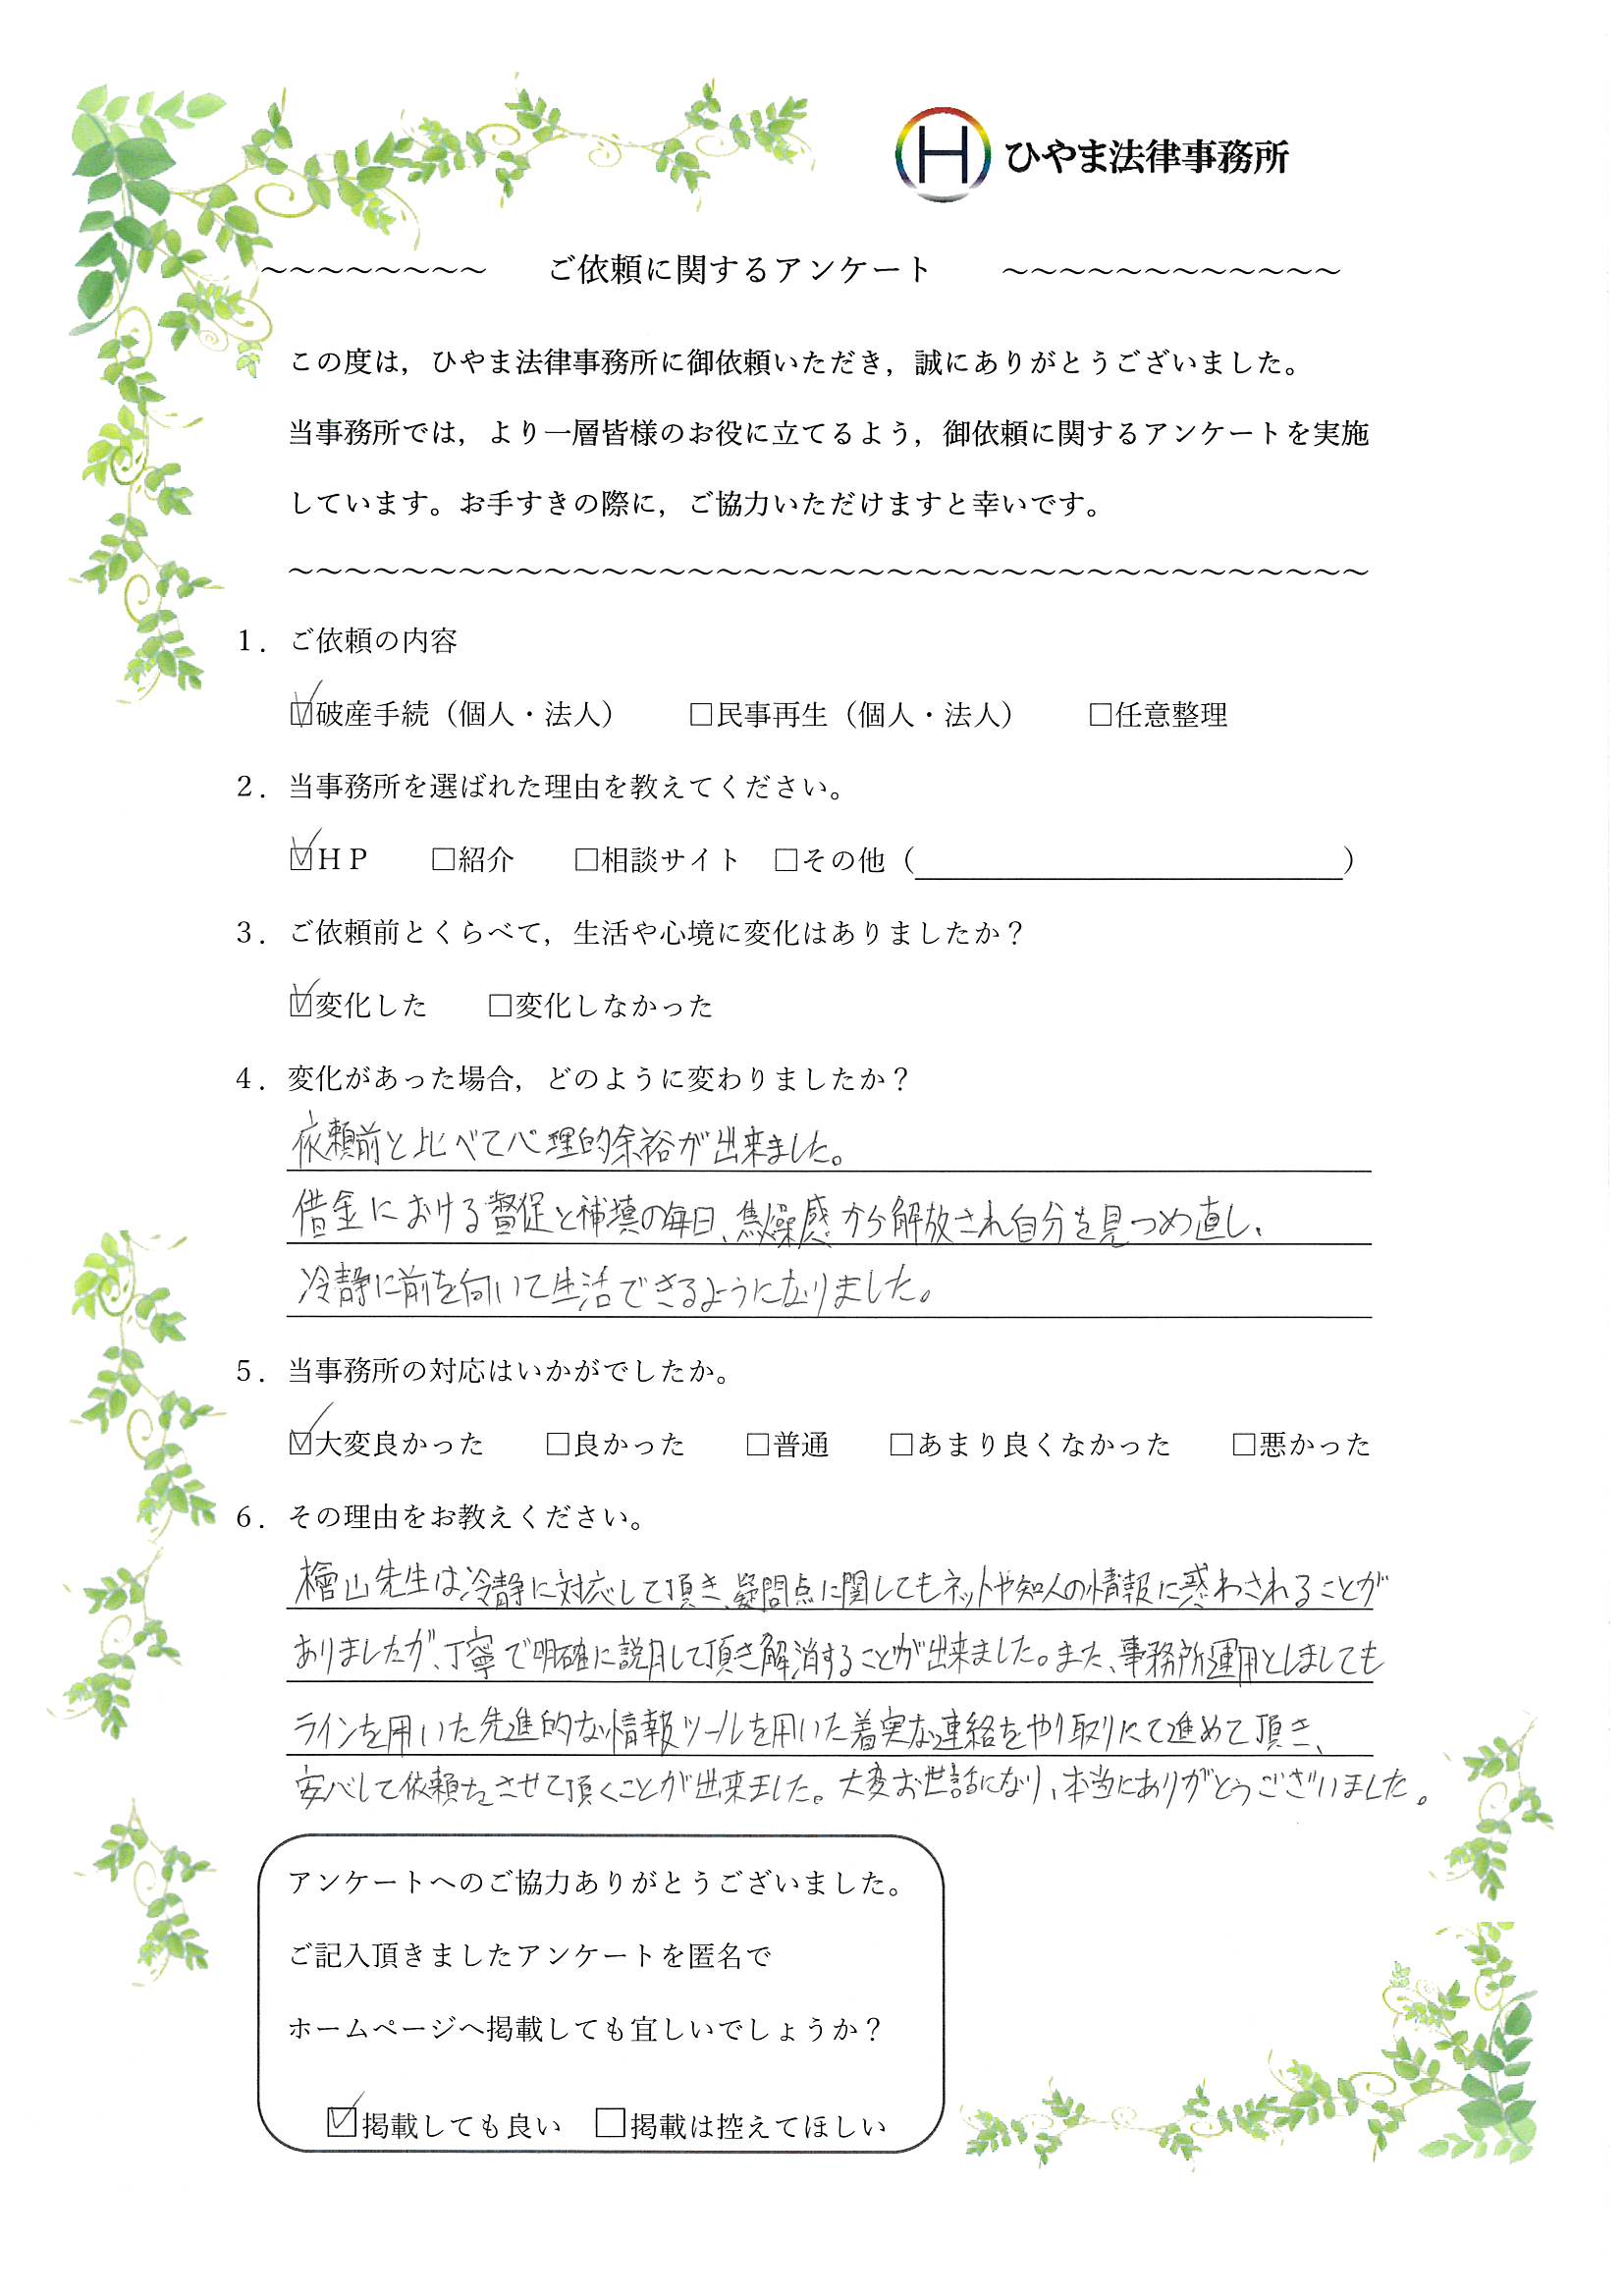 H ひやま法律事務所
~~~~~~~~ ご依頼に関するアンケート ~~~~~~~~~~~~
この度は，ひやま法律事務所に御依頼いただき，誠にありがとうございました。
当事務所では，より一層皆様のお役に立てるよう，御依頼に関するアンケートを実施
しています。お手すきの際に，ご協力いただけますと幸いです。
~~~~~~~~~~~~~~~~~~~~~~~~~~~~~~~~~~~~~~
１．ご依頼の内容
☑破産手続（個人・法人） □民事再生（個人・法人） □任意整理
２．当事務所を選ばれた理由を教えてください。
☑ＨＰ □紹介 □相談サイト □その他（　　　　　）
３．ご依頼前とくらべて，生活や心境に変化はありましたか？
☑変化した □変化しなかった
４．変化があった場合，どのように変わりましたか？
依頼前と比べて心理的余裕が出来ました。
借金における督促と補填の毎日、焦燥感から解放され自分を見つめ直し、
冷静に前を向いて生活できるようになりました。
５．当事務所の対応はいかがでしたか。
☑大変良かった □良かった □普通 □あまり良くなかった □悪かった
６．その理由をお教えください。
檜山先生は冷静に対応して頂き、疑問点に関してもネットや知人の情報に惑わされることが
ありましたが、丁寧で明確に説明して頂き解消することが出来ました。また、事務所運用としましても
ラインを用いた先進的な情報ツールを用いた着実な連絡をやり取りにて進めて頂き、
安心して依頼をさせて頂くことが出来ました。大変お世話になり、本当にありがとうございました。
アンケートへのご協力ありがとうございました。
ご記入頂きましたアンケートを匿名で
ホームページへ掲載しても宜しいでしょうか？
☑掲載しても良い □掲載は控えてほしい